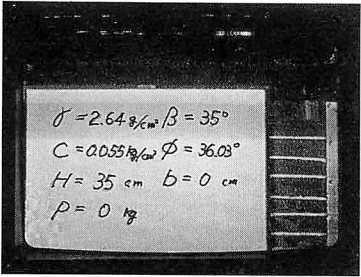 γ = 2.64 g/cm³ β = 35°
C = 0.055 kg/cm² Φ = 36.03°
H = 35 cm b = 0 cm
P = 0 kg